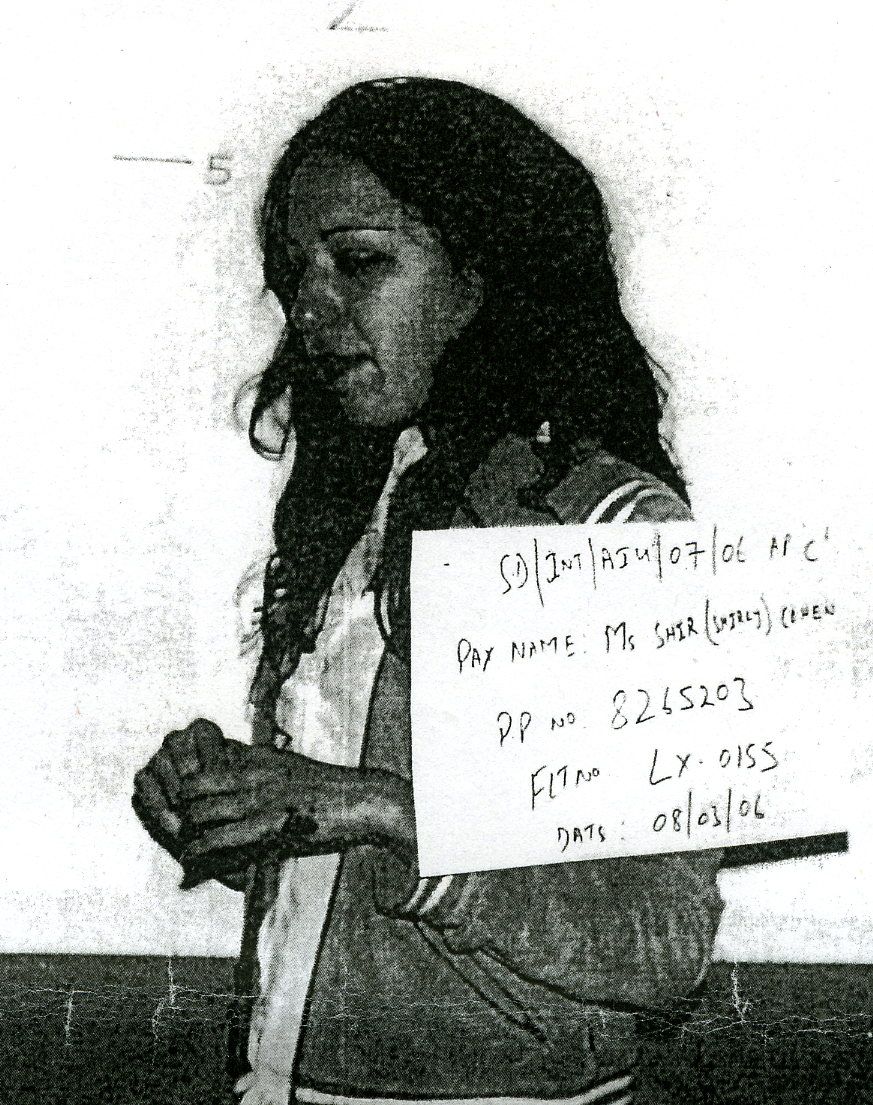 5
SD/INT/AIU/07/06 AP 'C'
PAX NAME: Ms SHIR (SHIRLY) COHEN
PP NO. 8265203
FLT NO LX. 0155
DATE: 08/03/06